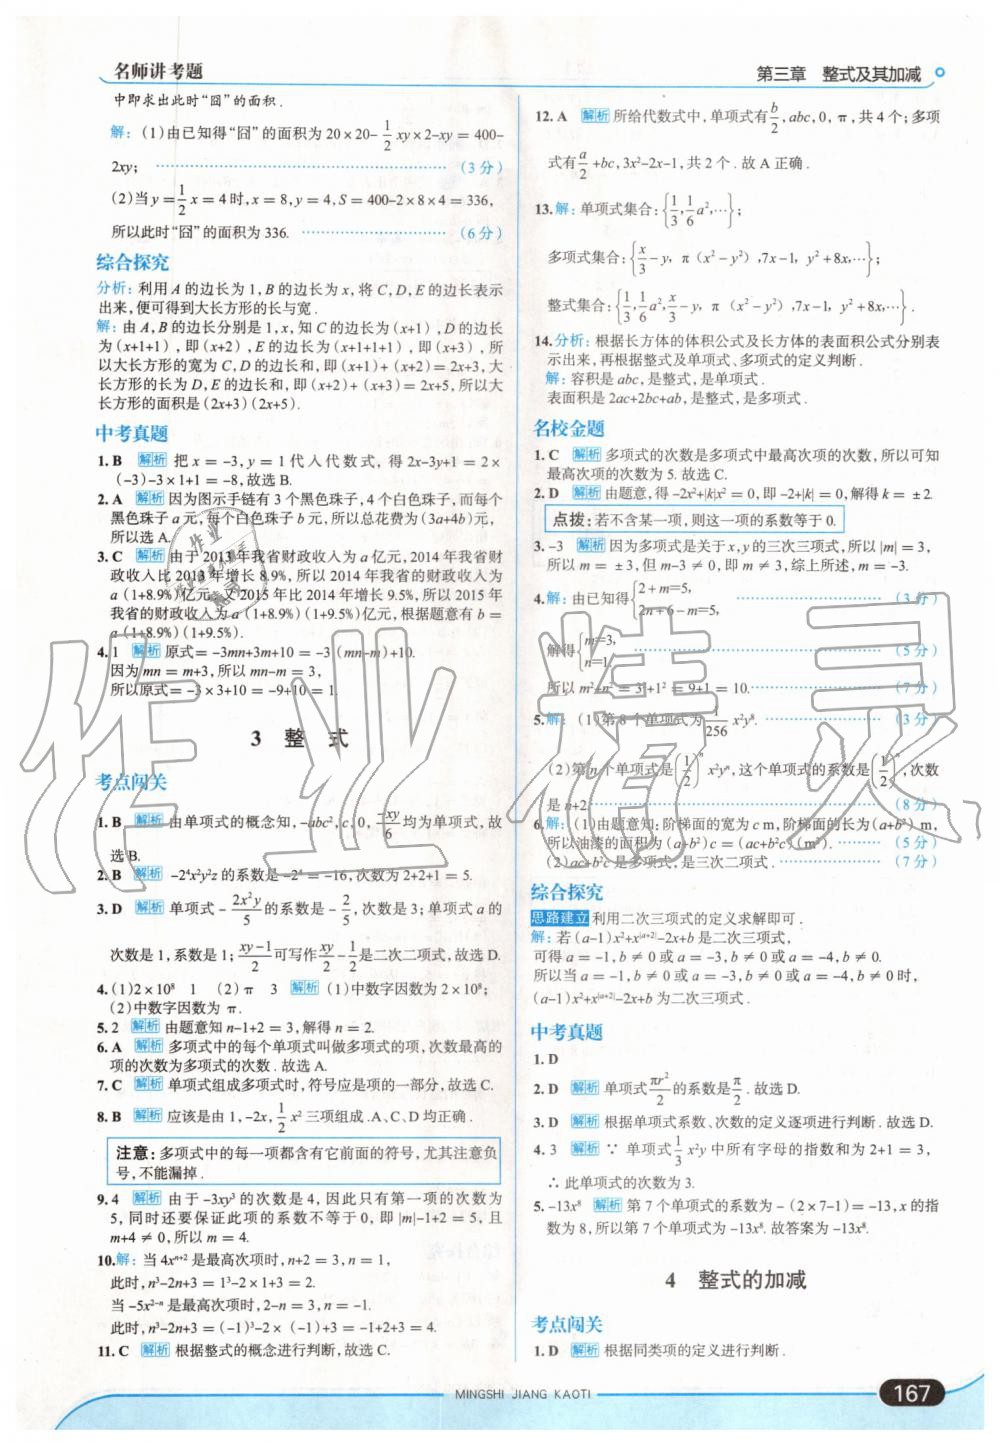 名师讲考题
第三章 整式及其加减
中即求出此时“囧”的面积.
解:(1)由已知得“囧”的面积为20×20-1/2xy×2-xy=400-
2xy; (3分)
(2)当y=1/2x=4时,x=8,y=4,S=400-2×8×4=336,
所以此时“囧”的面积为336. (6分)
综合探究
分析:利用A的边长为1,B的边长为x,将C,D,E的边长表示
出来,便可得到大长方形的长与宽.
解:由A,B的边长分别是1,x,知C的边长为(x+1),D的边长
为(x+1+1),即(x+2),E的边长为(x+1+1+1),即(x+3),所
以大长方形的宽为C,D的边长和,即(x+1)+(x+2)=2x+3,大
长方形的长为D,E的边长和,即(x+2)+(x+3)=2x+5,所以大
长方形的面积是(2x+3)(2x+5).
中考真题
1.B 解析 把x=-3,y=1代入代数式,得2x-3y+1=2×
(-3)-3×1+1=-8,故选B.
2.A 解析 因为图示手链有3个黑色珠子,4个白色珠子,而每个
黑色珠子a元,每个白色珠子b元,所以总花费为(3a+4b)元,
所以选A.
3.C 解析 由于2013年我省财政收入为a亿元,2014年我省财
政收入比2013年增长8.9%,所以2014年我省的财政收入为
a(1+8.9%)亿元,又2015年比2014年增长9.5%,所以2015年
我省的财政收入为a(1+8.9%)(1+9.5%)亿元,根据题意有b=
a(1+8.9%)(1+9.5%).
4.1 解析 原式=-3mn+3m+10=-3(mn-m)+10.
因为mn=m+3,所以mn-m=3,
所以原式=-3×3+10=-9+10=1.
3 整 式
考点闯关
1.B 解析 由单项式的概念知,-abc²,c,0,-xy/6均为单项式,故
选B.
2.B 解析 -2⁴x²y²z的系数是-2⁴=-16,次数为2+2+1=5.
3.D 解析 单项式-2x²y/5的系数是-2/5,次数是3;单项式a的
次数是1,系数是1;xy-1/2可写作xy/2-1/2,是二次二项式,故选D.
4.(1)2×10⁸ 1 (2)π 3 解析 (1)中数字因数为2×10⁸;
(2)中数字因数为π.
5.2 解析 由题意知n-1+2=3,解得n=2.
6.A 解析 多项式中的每个单项式叫做多项式的项,次数最高的
项的次数为多项式的次数.故选A.
7.C 解析 单项式组成多项式时,符号应是项的一部分,故选C.
8.B 解析 应该是由1,-2x,1/2x²三项组成.A、C、D均正确.
注意:多项式中的每一项都含有它前面的符号,尤其注意负
号,不能漏掉.
9.4 解析 由于-3xy³的次数是4,因此只有第一项的次数为
5,同时还要保证此项的系数不等于0,即|m|-1+2=5,且
m+4≠0,所以m=4.
10.解:当4xⁿ⁺²是最高次项时,n+2=3,n=1,
此时,n³-2n+3=1³-2×1+3=2.
当-5x²⁻ⁿ是最高次项时,2-n=3,n=-1.
此时,n³-2n+3=(-1)³-2×(-1)+3=-1+2+3=4.
11.C 解析 根据整式的概念进行判断,故选C.
12.A 解析 所给代数式中,单项式有b/2,abc,0,π,共4个;多项
式有a/2+bc,3x²-2x-1,共2个.故A正确.
13.解:单项式集合:{1/3,1/6a²,…};
多项式集合:{x/3-y,π(x²-y²),7x-1,y²+8x,…};
整式集合:{1/3,1/6a²,x/3-y,π(x²-y²),7x-1,y²+8x,…}.
14.分析:根据长方体的体积公式及长方体的表面积公式分别表
示出来,再根据整式及单项式、多项式的定义判断.
解:容积是abc,是整式,是单项式.
表面积是2ac+2bc+ab,是整式,是多项式.
名校金题
1.C 解析 多项式的次数是多项式中最高次项的次数,所以可知
最高次项的次数为5.故选C.
2.D 解析 由题意,得-2x²+|k|x²=0,即-2+|k|=0,解得k=±2.
点拨:若不含某一项,则这一项的系数等于0.
3.-3 解析 因为多项式是关于x,y的三次三项式,所以|m|=3,
所以m=±3,但m-3≠0,即m≠3,综上所述,m=-3.
4.解:由已知得{2+m=5, (3分)
2n+6-m=5,
解得{m=3, (5分)
n=1.
所以m²+n²=3²+1²=9+1=10. (7分)
5.解:(1)第8个单项式为1/256x²y⁸. (3分)
(2)第n个单项式是(1/2)ⁿx²yⁿ,这个单项式的系数是(1/2)ⁿ,次数
是n+2. (8分)
6.解:(1)由题意知:阶梯面的宽为c m,阶梯面的长为(a+b²)m,
所以油漆的面积为(a+b²)c=(ac+b²c)(m²). (5分)
(2)ac+b²c是多项式,是三次二项式. (7分)
综合探究
思路建立 利用二次三项式的定义求解即可.
解:若(a-1)x²+x|a+2|-2x+b是二次三项式,
可得a=-1,b≠0或a=-3,b≠0或a=-4,b≠0.
所以当a=-1,b≠0或a=-3,b≠0或a=-4,b≠0时,
(a-1)x²+x|a+2|-2x+b为二次三项式.
中考真题
1.D
2.D 解析 单项式πr²/2的系数是π/2.故选D.
3.D 解析 根据单项式系数、次数的定义逐项进行判断.故选D.
4.3 解析 ∵单项式1/3x²y中所有字母的指数和为1+2=3,
∴此单项式的次数为3.
5.-13x⁸ 解析 第7个单项式的系数为-(2×7-1)=-13,x的指
数为8,所以第7个单项式为-13x⁸.故答案为-13x⁸.
4 整式的加减
考点闯关
1.D 解析 根据同类项的定义进行判断.
MINGSHI JIANG KAOTI
167
作业精灵